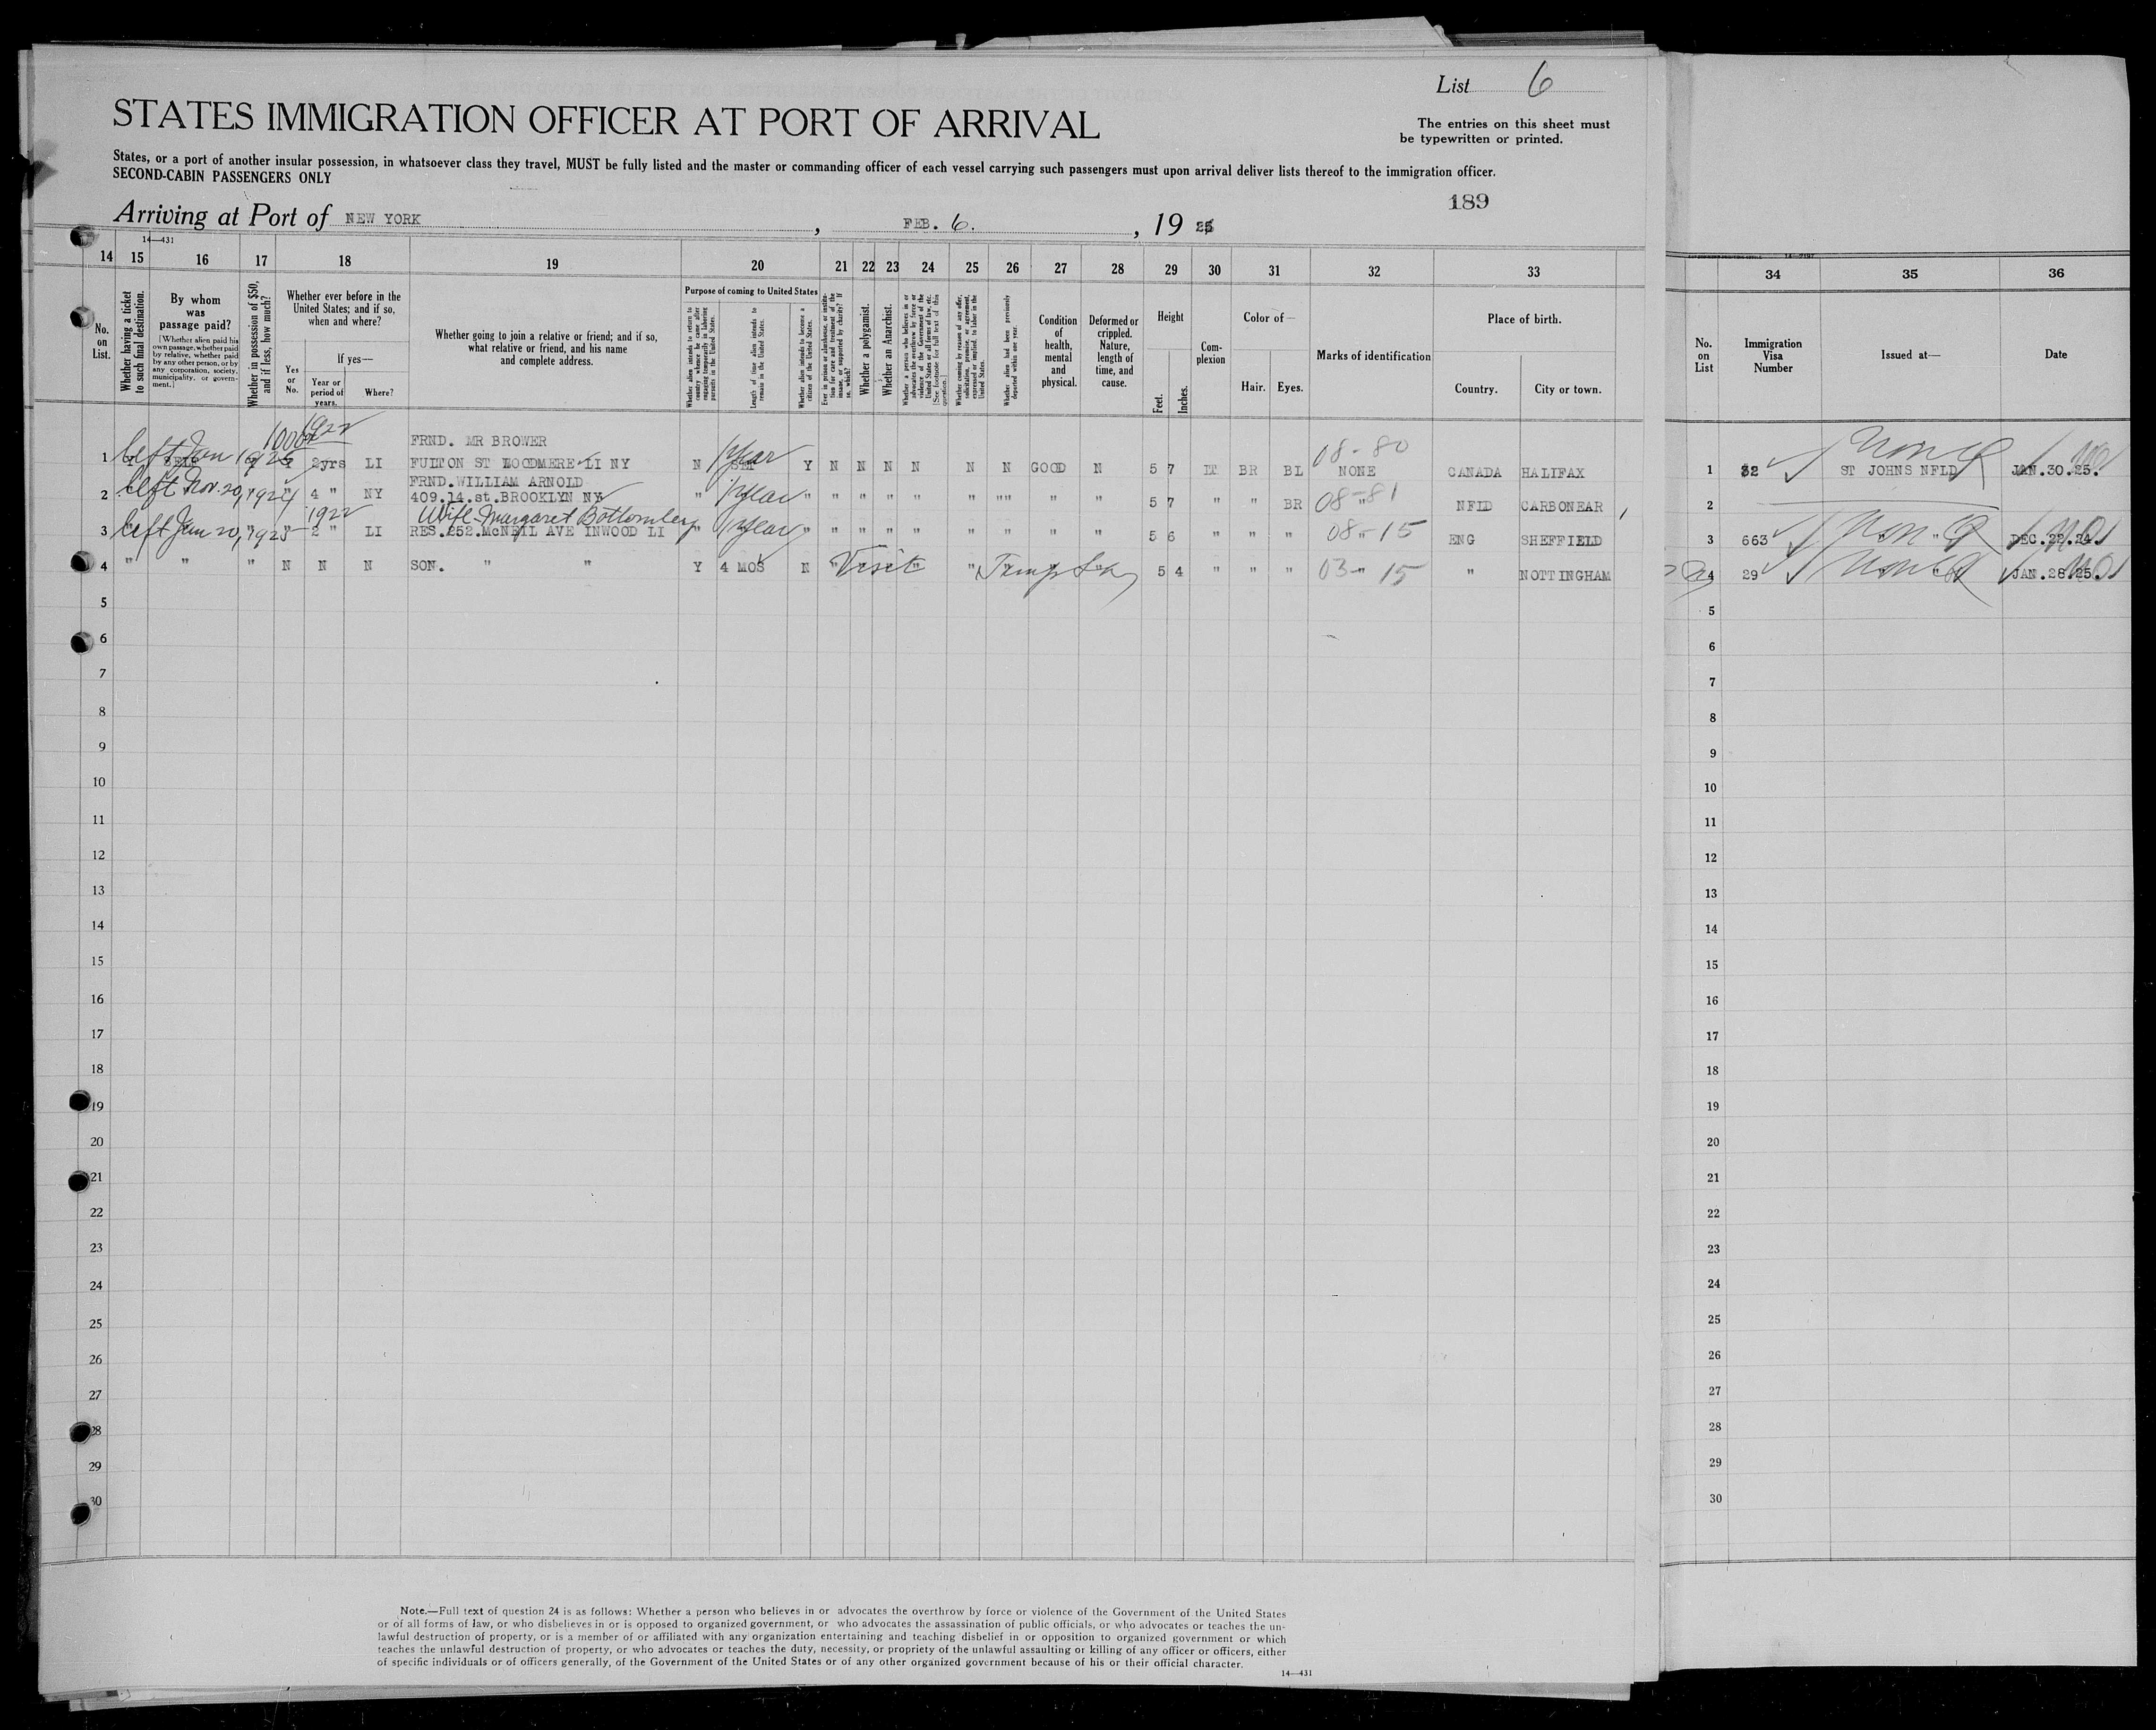 List 6
STATES IMMIGRATION OFFICER AT PORT OF ARRIVAL
The entries on this sheet must
be typewritten or printed.
States, or a port of another insular possession, in whatsoever class they travel, MUST be fully listed and the master or commanding officer of each vessel carrying such passengers must upon arrival deliver lists thereof to the immigration officer.
SECOND-CABIN PASSENGERS ONLY
189
Arriving at Port of NEW YORK, FEB. 6., 19 25
14—431
14 15 16 17 18 19 20 21 22 23 24 25 26 27 28 29 30 31 32 33 34 35 36
No. on List.
Whether having a ticket to such final destination.
By whom was passage paid?
[Whether alien paid his own passage, whether paid by relative, whether paid by any other person, or by any corporation, society, municipality, or government.]
Whether in possession of $50, and if less, how much?
Whether ever before in the United States; and if so, when and where?
Yes or No.
If yes—
Year or period of years.
Where?
Whether going to join a relative or friend; and if so, what relative or friend, and his name and complete address.
Purpose of coming to United States
Whether alien intends to return to country whence he came after engaging temporarily in laboring pursuits in the United States.
Length of time alien intends to remain in the United States.
Whether alien intends to become a citizen of the United States.
Ever in prison or almshouse, or institution for care and treatment of the insane, or supported by charity? If so, which?
Whether a polygamist.
Whether an Anarchist.
Whether a person who believes in or advocates the overthrow by force or violence of the Government of the United States or all forms of law, etc. [See footnote for full text of this question.]
Whether coming by reason of any offer, solicitation, promise, or agreement, expressed or implied, to labor in the United States.
Whether alien had been previously deported within one year.
Condition of health, mental and physical.
Deformed or crippled. Nature, length of time, and cause.
Height
Feet. Inches.
Complexion
Color of—
Hair. Eyes.
Marks of identification
Place of birth.
Country. City or town.
No. on List
Immigration Visa Number
Issued at—
Date
1922
FRND. MR BROWER 1 year 08-80 Non Q
1 left Jan 1925 SELF 2yrs LI FULTON ST WOODMERE LI NY N Y N N N N N N GOOD N 5 7 LT BR BL NONE CANADA HALIFAX 1 32 ST JOHNS NFLD JAN.30.25.
left Nov. 20, 1924 FRND.WILLIAM ARNOLD
2 " 4 " NY 409.14.st.BROOKLYN NY " 1 year " " " " " " "" " " 5 7 " " BR 08-81 " NFLD CARBONEAR 2
1922 Wife Margaret Bottomley
3 left Jan 20, 1925 " 2 " LI RES.252.McNEIL AVE INWOOD LI " 1 year " " " " " " " " " 5 6 " " " 08-15 " ENG SHEFFIELD 3 663 Non Q " " DEC.22.24.
4 " " " N N N SON. " " Y 4 MOS N Visit " 5 4 " " " 03-15 " " NOTTINGHAM 4 29 Non Q " JAN.28.25.
5 5
6 6
7 7
8 8
9 9
10 10
11 11
12 12
13 13
14 14
15 15
16 16
17 17
18 18
19 19
20 20
21 21
22 22
23 23
24 24
25 25
26 26
27 27
28 28
29 29
30 30
Note.—Full text of question 24 is as follows: Whether a person who believes in or advocates the overthrow by force or violence of the Government of the United States
or of all forms of law, or who disbelieves in or is opposed to organized government, or who advocates the assassination of public officials, or who advocates or teaches the un-
lawful destruction of property, or is a member of or affiliated with any organization entertaining and teaching disbelief in or opposition to organized government or which
teaches the unlawful destruction of property, or who advocates or teaches the duty, necessity, or propriety of the unlawful assaulting or killing of any officer or officers, either
of specific individuals or of officers generally, of the Government of the United States or of any other organized government because of his or their official character.
14—431